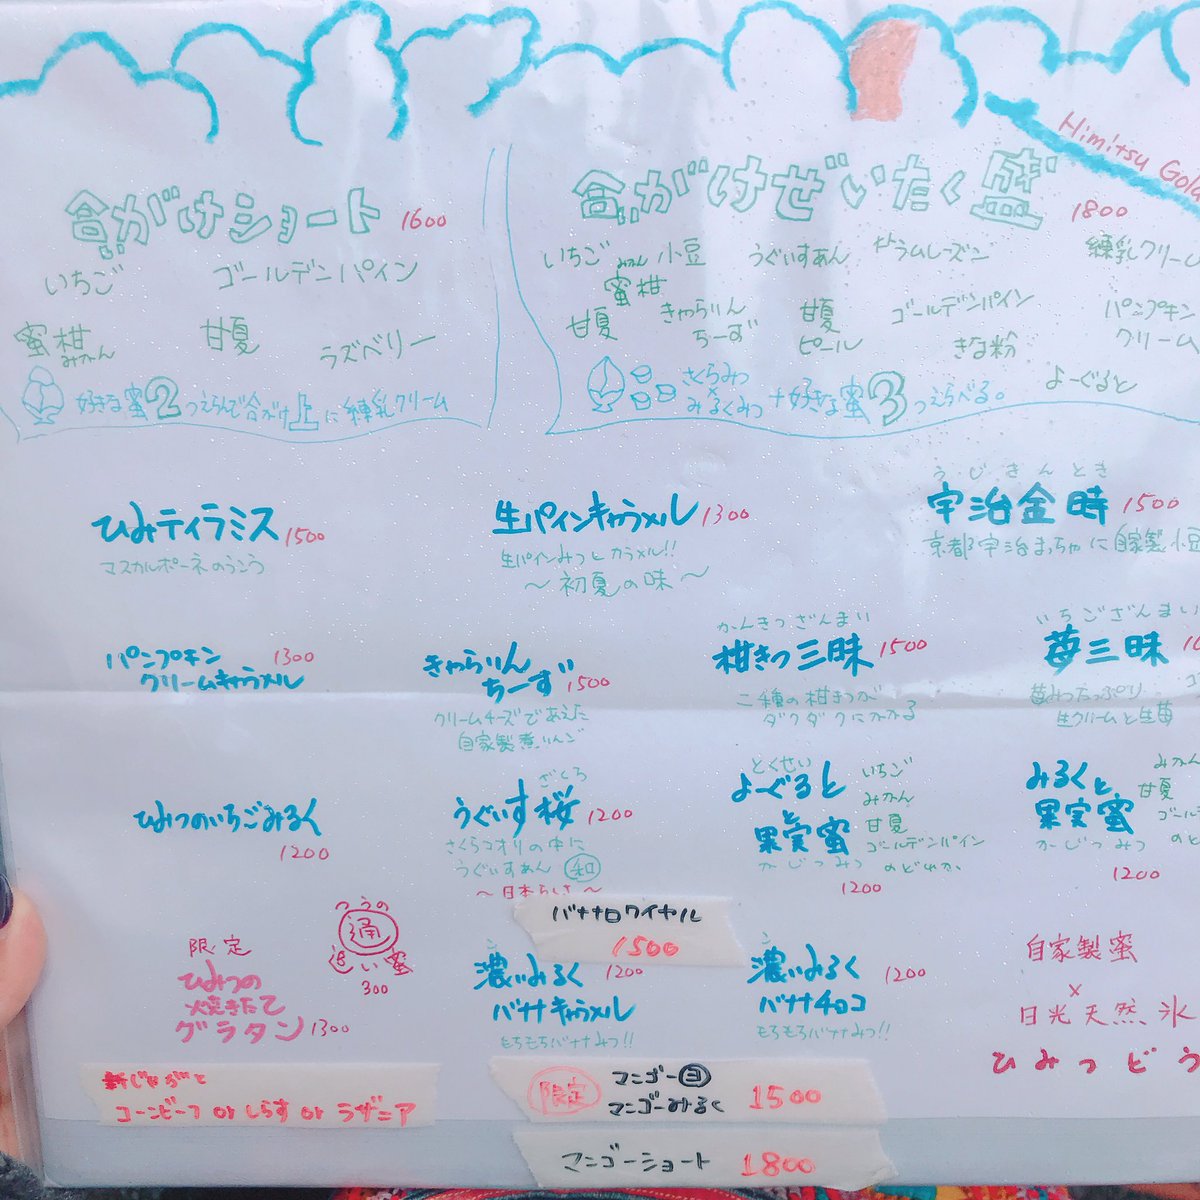 Himitsu Gola
合がけショート 1600
いちご ゴールデンパイン
蜜柑 みかん 甘夏 ラズベリー
好きな蜜2つえらんで合がけ 上に練乳クリーム
合がけぜいたく盛 1800
いちご 小豆 うぐいすあん ラムレーズン 練乳クリーム
みかん
蜜柑
甘夏 きゃらりんちーず 甘夏ピール ゴールデンパイン きな粉 パンプキンクリーム
よーぐると
さくらみつ
みるくみつ
+好きな蜜3つえらべる。
ひみティラミス 1500
マスカルポーネのうこう
生パインキャラメル 1300
生パインみつとカラメル!!
〜初夏の味〜
うじきんとき
宇治金時 1500
京都宇治まっちゃに自家製小豆
パンプキン 1300
クリームキャラメル
きゃらりん
ちーず 1500
クリームチーズであえた
自家製煮りんご
かんきつざんまい
柑きつ三昧 1500
二種の柑きつが
ダクダクにかかる
いちござんまい
苺三昧
苺みつたっぷり
生クリームと生苺
ひみつのいちごみるく
1200
ざくら
うぐいす桜 1200
さくらコオリの中に
うぐいすあん 和
〜日本らしさ〜
とくせい
よーぐると
と
果実蜜
かじつみつ
いちご
みかん
甘夏
ゴールデンパイン
のどれか、
1200
みるくと
果実蜜
かじつみつ
みかん
甘夏
ゴール
のど
1200
限定
ひみつの
焼きたて
グラタン 1300
つうの
通
追い蜜
300
バナナロワイヤル
1500
濃いみるく 1200
バナナキャラメル
もちもちバナナみつ!!
濃いみるく 1200
バナナチョコ
もちもちバナナみつ!!
自家製蜜
×
日光天然氷
ひみつどう
新じゃがと
コーンビーフ or しらす or ラザニア
限定 マンゴーヨ
マンゴーみるく 1500
マンゴーショート 1800